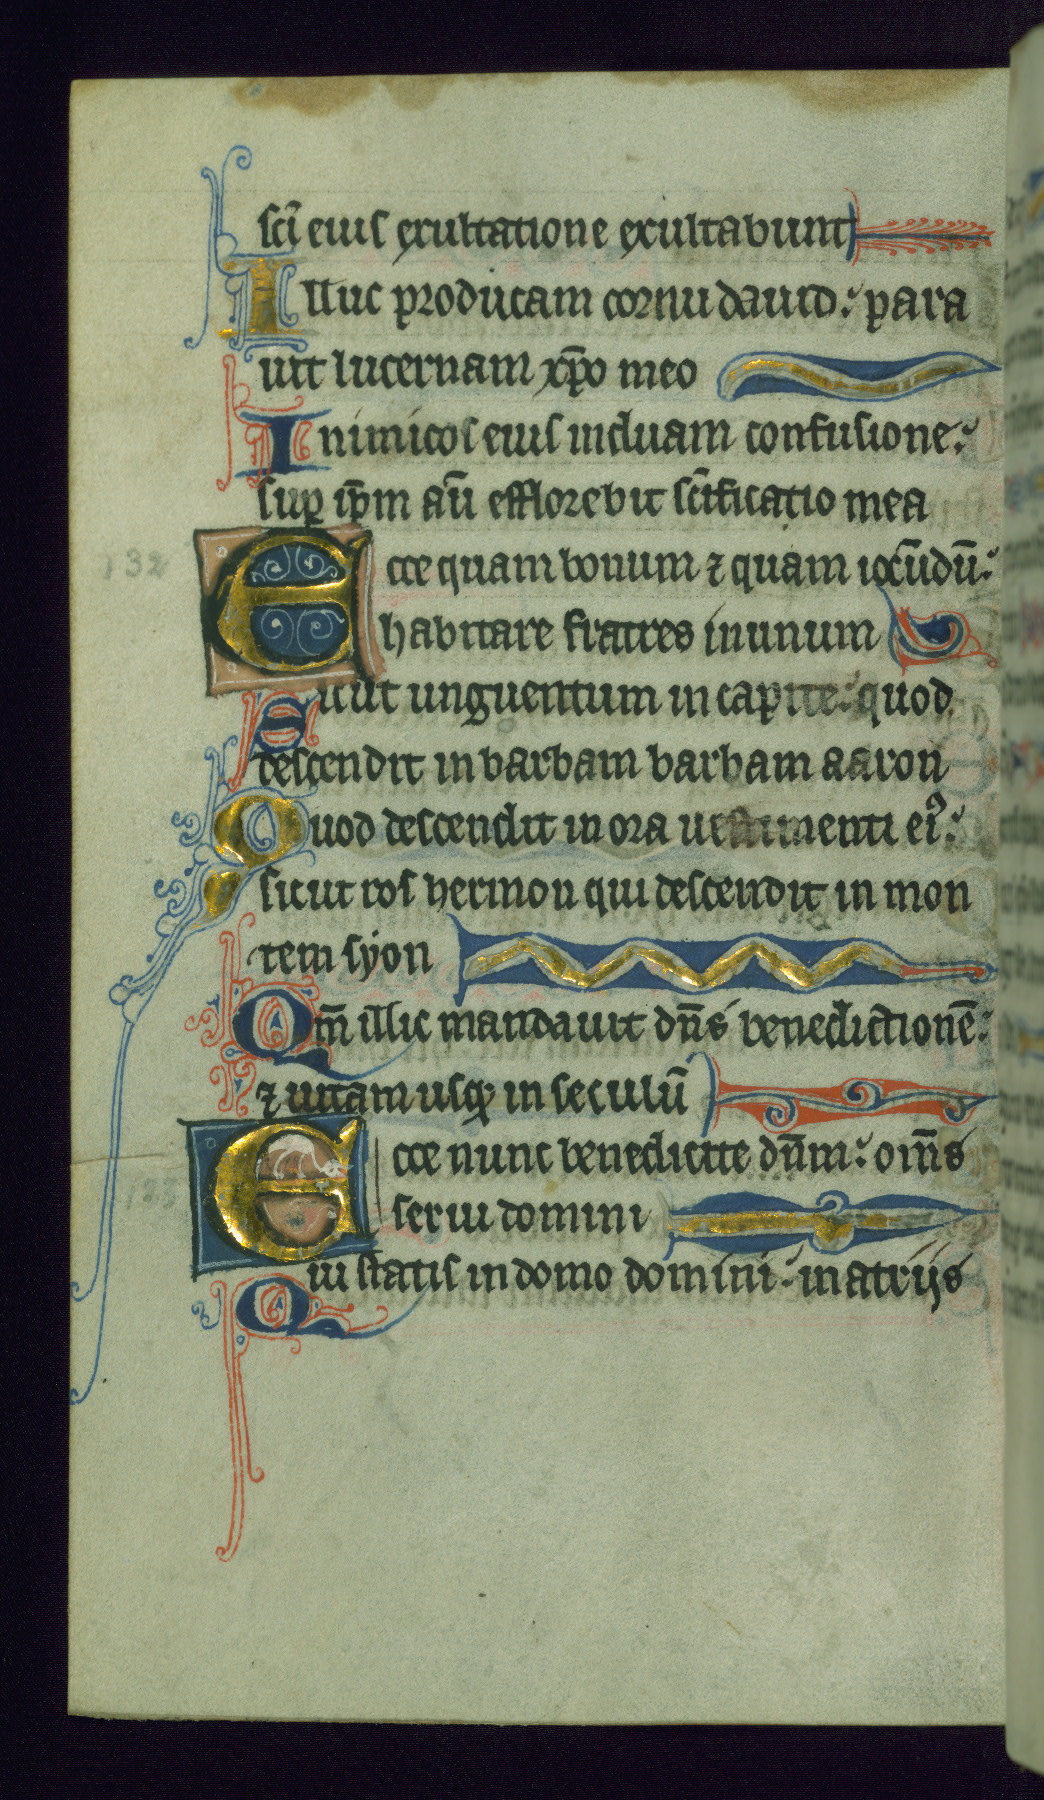 sc̄i eius exultatione exultabunt
Illuc producam cornu dauid: para
uit lucernam xp̄o meo
Inimicos eius induam confusione:
sup ip̄m aū efflorebit sc̄ificatio mea
132
Ecce quam bonum ⁊ quam iocūdū:
habitare fratres in unum
Sicut unguentum in capite: quod
descendit in barbam barbam aaron
Quod descendit in ora uestimenti ei⁹:
sicut ros hermon qui descendit in mon
tem syon
Qm̄ illic mandauit dn̄s benedictionē:
⁊ uitam usq; in seculū
Ecce nunc benedicite dn̄m: om̄s
serui domini
Qui statis in domo domini: in atrijs